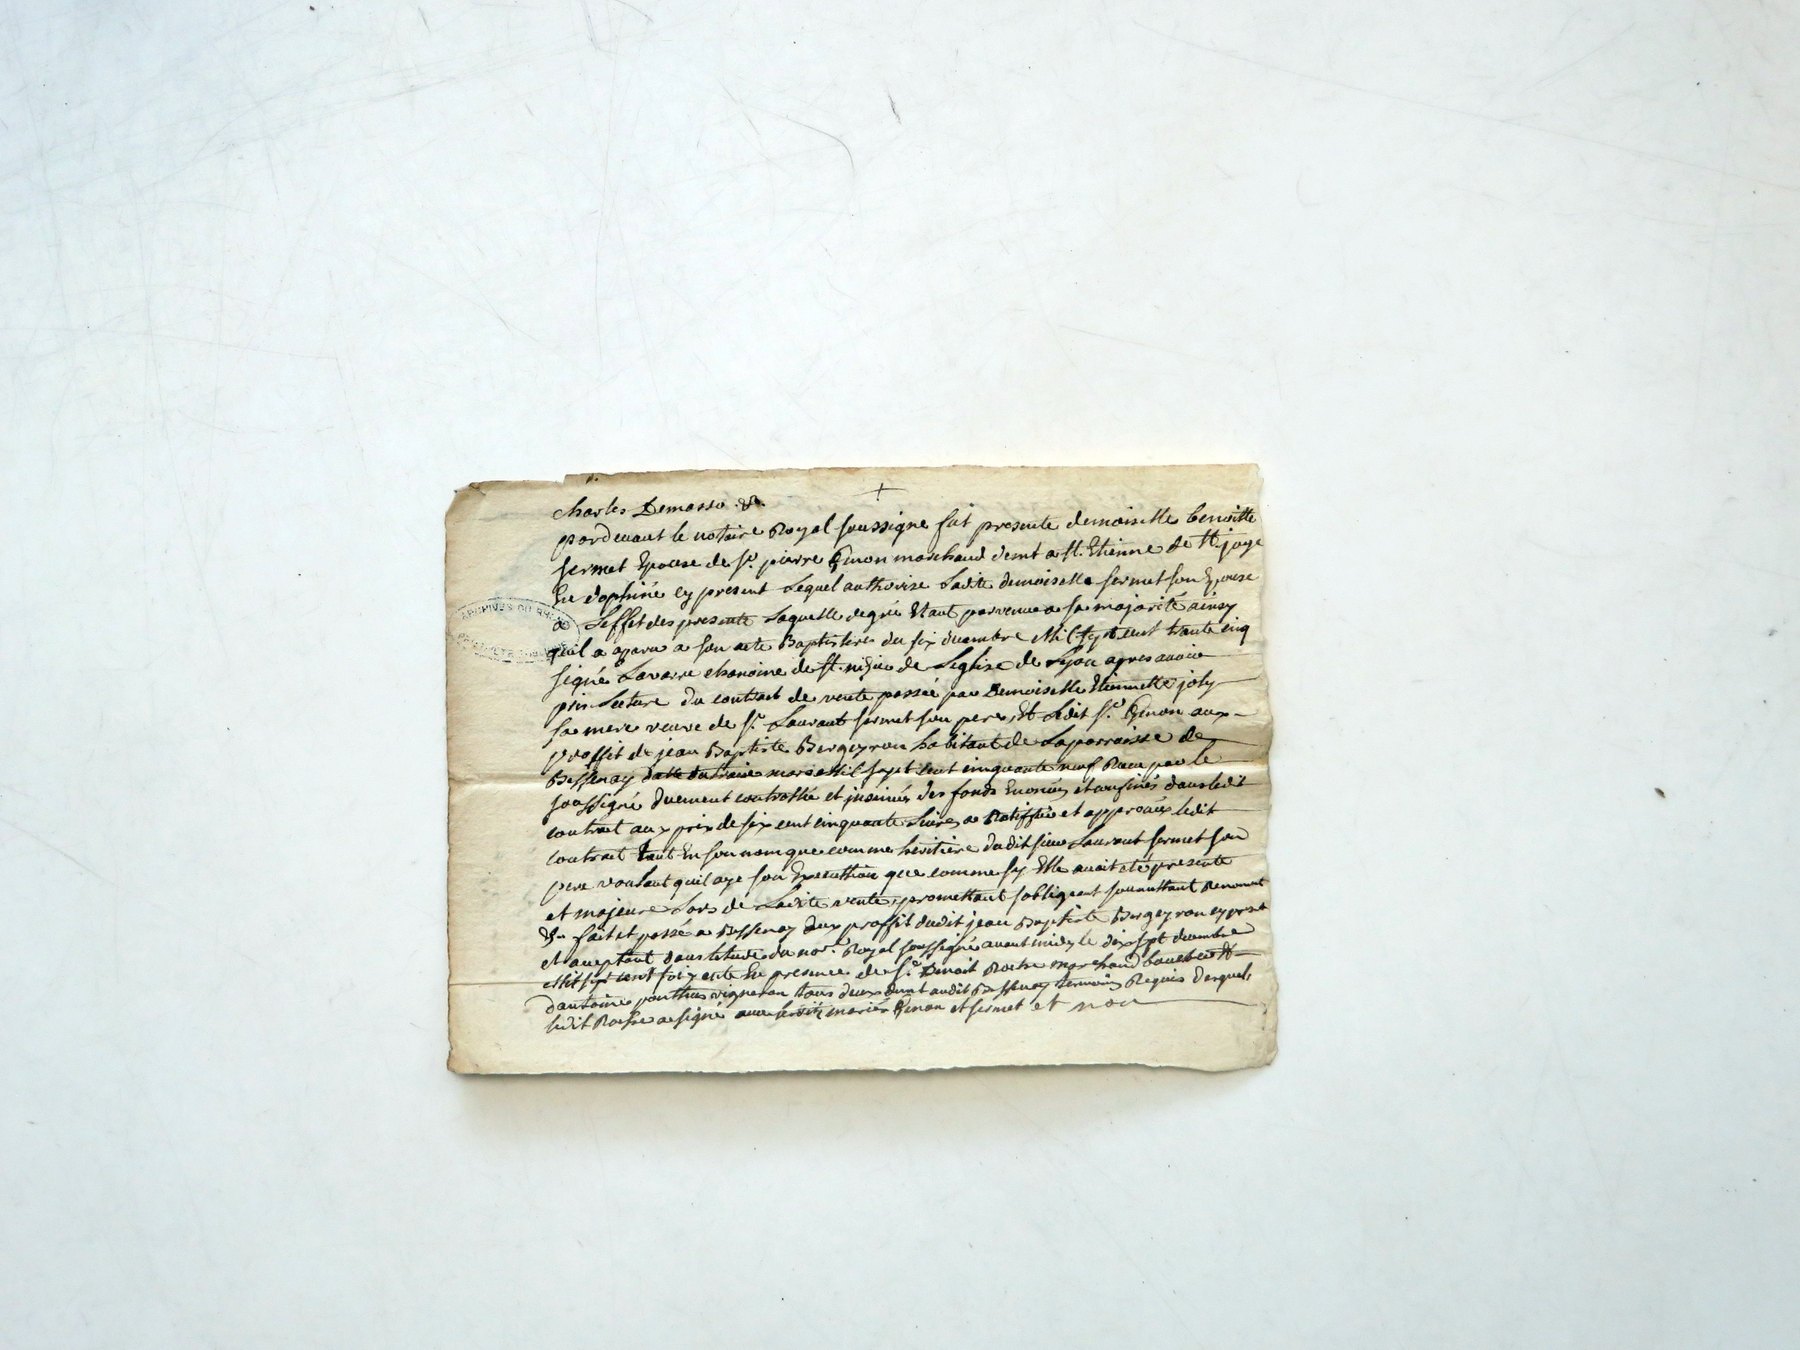 +
charles Demasso &.
pardevant le notaire Royal soussigne fut presente demoiselle benoitte
fermet Epouse de Sr. pierre Emon marchand demt a St. Etienne de St. joye
En dophiné cy present Lequel authorise Ladite demoiselle fermet son Epouse
a Leffet des presente Laquelle degre Etant parvenue a sa majorité ainsy
quil a aparu a son acte Baptistere du six decembre Mil sept cent trante cinq
signé Lavarre chanoine de St. nizier de Leglise de Lyon apres avoir
pris Lecture du contrait de vente passée par Demoiselle Etiennette joly
sa mere veuve de Sr. Laurant fermet son pere, Et Ledit Sr. Emon aux
proffit de jean Baptiste Bergeyron habitant de Laparroisse de
Bessenay datté du mars Mil sept cent cinquante neuf Recu par le
soussigné duement controllé et insinué des fonds Enoncés et confinés dans ledit
contrait aux prix de six cent cinquante Livres a Ratiffié et approuvé ledit
contrait tant En son nom que comme heritiere dudit sieur Laurant fermet son
pere voulant quil aye son Execution que comme sy Elle avoit eté presente
et majeure Lors de Ladite vente, promettant sobligeant soumettant Renoncant
&. fait et passé a Bessenay aux proffit dudit jean Baptiste Bergeyron cy prest
et aceptant dans letude du nore. Royal soussigné avant midy le dix sept decembre
Mil sept cent soixante En presence de Sr. Benoit Roche marchand Et
dantoine vigneron tous deux demt audit Bessenay temoins Requis desquels
ledit Roche a signé avec lesdits mariés Emon et fermet et non
ARCHIVES DU RHÔNE